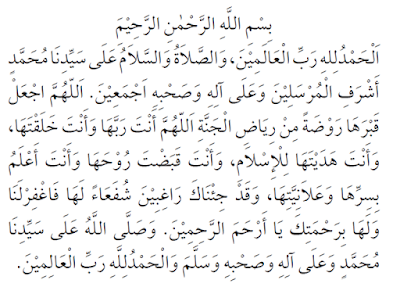 بِسْمِ اللَّهِ الرَّحْمٰنِ الرَّحِيْمَ
اَلْحَمْدُلِلهِ رَبِّ الْعَالَمِيْنَ، وَالصَّلَاةُ وَالسَّلَامُ عَلَى سَيِّدِنَا مُحَمَّدٍ
أَشْرَفِ الْمُرْسَلِيْنَ وَعَلَى آلِهِ وَصَحْبِهِ اَجْمَعِيْنَ. اَللّٰهُمَّ اجْعَلْ
قَبْرَهَا رَوْضَةً مِنْ رِيَاضِ الْجَنَّةِ اَللّٰهُمَّ أَنْتَ رَبُّهَا وَأَنْتَ خَلَقْتَهَا،
وَأَنْتَ هَدَيْتَهَا لِلْإِسْلَامِ، وَأَنْتَ قَبَضْتَ رُوْحَهَا وَأَنْتَ أَعْلَمُ
بِسِرِّهَا وَعَلَانِيَّتِهَا، وَقَدْ جِئْنَاكَ رَاغِبِيْنَ شُفَعَاءً لَهَا فَاغْفِرْلَنَا
وَلَهَا بِرَحْمَتِكَ يَا أَرْحَمَ الرَّحِمِيْنَ. وَصَلَّى اللَّهُ عَلَى سَيِّدِنَا
مُحَمَّدٍ وَعَلَى آلِهِ وَصَحْبِهِ وَسَلَّمَ وَالْحَمْدُلِلَّهِ رَبِّ الْعَالِمِيْنَ.